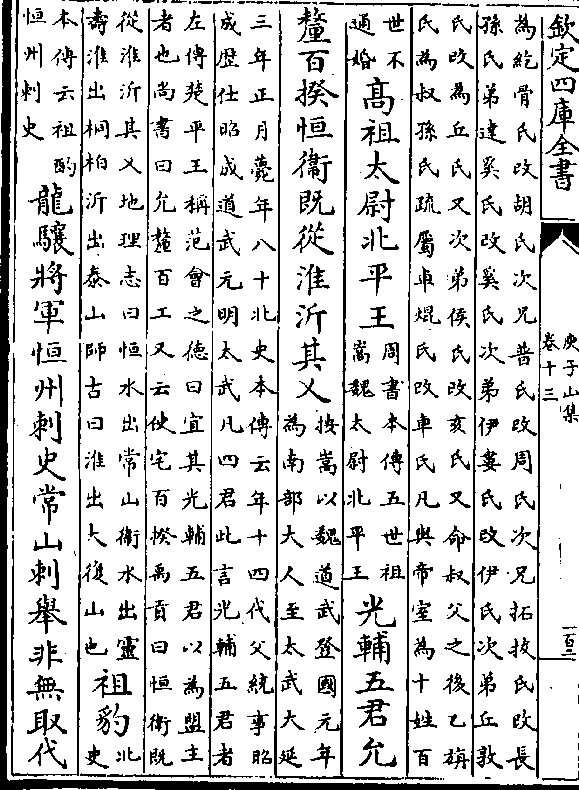 欽定四庫全書
庾子山集
卷十三
一百二
為紇骨氏改胡氏次兄普氏改周氏次兄拓拔氏改長
孫氏弟達奚氏改奚氏次弟伊婁氏改伊氏次弟丘敦
氏改為丘氏又次弟侯氏改亥氏又命叔父之後乙旃
氏為叔孫氏疏屬車焜氏改車氏凡與帝室為十姓百
世不
通婚
高祖太尉北平王
周書本傳五世祖
嵩魏太尉北平王
光輔五君允
釐百揆恒衞既從淮沂其乂
按嵩以魏道武登國元年
為南部大人至太武大延
三年正月薨年八十北史本傳云年十四代父統事昭
成歴仕昭成道武元明太武凡四君此言光輔五君者
左傳楚平王稱范會之德曰宜其光輔五君以為盟主
者也尚書曰允釐百工又云使宅百揆禹貢曰恒衞既
從淮沂其乂地理志曰恒水出常山衞水出靈
壽淮出桐柏沂出泰山師古曰淮出大復山也
祖豹
北
史
本傳云祖酌
恒州刺史
龍驤將軍恒州刺史常山刺舉非無取代